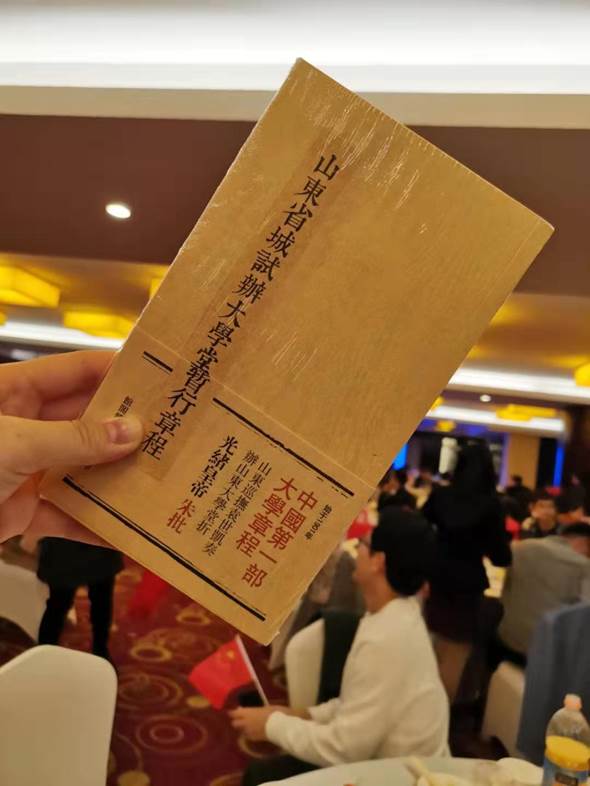 山東省城試辦大學堂暫行章程
中國第一部
大學章程
山東巡撫袁世凱奏
辦山東大學堂折
光緒皇帝 朱批